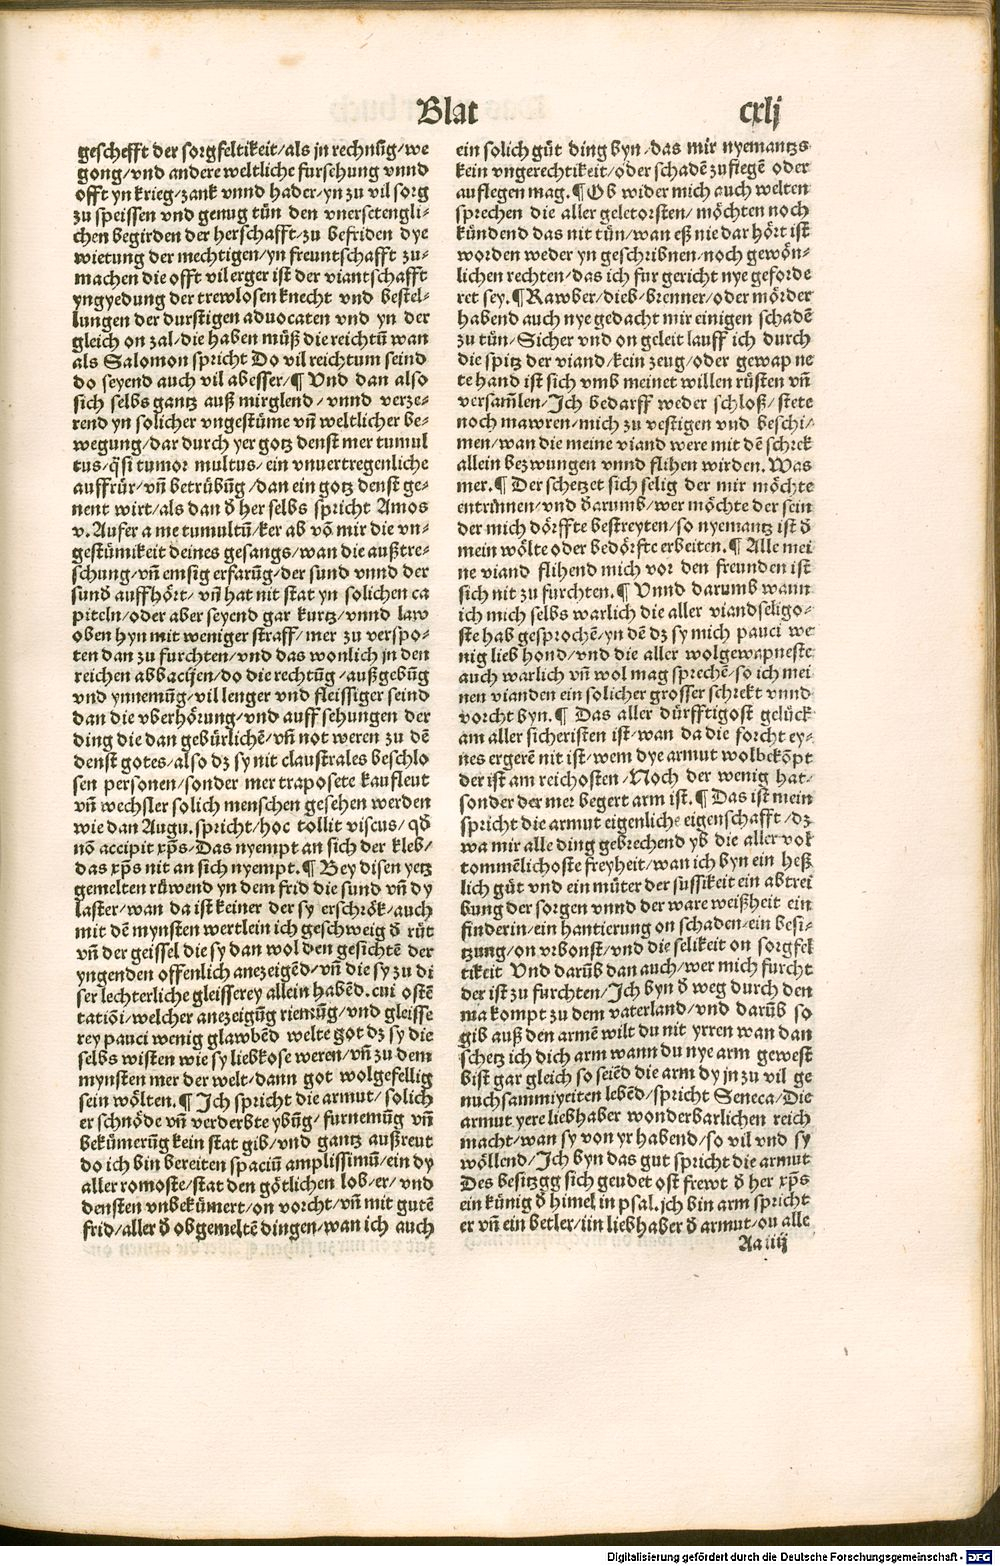 Blat cxlj
geschefft der sorgfeltikeit/als jn rechnũg/we
gong/vnd andere weltliche fursehung vnnd
offt yn krieg/zank vnnd hader/yn zu vil sorg
zu speissen vnd genug tün den vnersetengli⸗
chen begirden der herschafft/zu befriden dye
wietung der mechtigen/yn freuntschafft zu⸗
machen die offt vil erger ist der viantschafft
yngyedung der trewlosen knecht vnd bestel⸗
lungen der durstigen aduocaten vnd yn der
gleich on zal/die haben müß die reichtũ wan
als Salomon spricht Do vil reichtum seind
do seyend auch vil abesser/¶ Vnd dan also
sich selbs gantz auß mirglend/vnnd verze⸗
rend yn solicher vngestüme vñ weltlicher be⸗
wegung/dar durch yer gotz denst mer tumul
tus/q̃si tumor multus/ein vnuertregenliche
auffrür/vñ betrübũg/dan ein gotz denst ge⸗
nent wirt/als dan đ her selbs spricht Amos
v. Aufer a me tumultũ/ker ab võ mir die vn⸗
gestümikeit deines gesangs/wan die außtre⸗
schung/vñ emsig erfarũg/der sund vnnd der
sund auffhört/vñ hat nit stat yn solichen ca
piteln/oder aber seyend gar kurtz/vnnd law
oben hyn mit weniger straff/mer zu verspo⸗
ten dan zu furchten/vnd das wonlich jn den
reichen abbacijen/do die rechtũg/außgebũg
vnd ynnemũg/vil lenger vnd fleissiger seind
dan die vberhörung/vnd auff sehungen der
ding die dan gebürlichẽ/vñ not weren zu dẽ
denst gotes/also dz sy nit claustrales beschlo
sen personen/sonder mer traposete kaufleut
vñ wechsler solich menschen gesehen werden
wie dan Augu. spricht/hoc tollit viscus/qđ
nõ accipit xp̃s/Das nyempt an sich der kleb/
das xp̃s nit an sich nyempt.¶ Bey disen yetz
gemelten rüwend yn dem frid die sund vñ dy
laster/wan da ist keiner der sy erschrök/auch
mit dẽ mynsten wertlein ich geschweig đ rüt
vñ der geissel die sy dan wol den gesichtẽ der
yngenden offenlich anezeigẽd/vñ die sy zu di
ser lechterliche gleisserey allein habẽd. cui ostẽ
tatiõi/welcher anezeigũg riemũg/vnd gleisse
rey pauci wenig glawbẽd welte got dz sy die
selbs wisten wie sy liebkose weren/vñ zu dem
mynsten mer der welt/dann got wolgefellig
sein wölten.¶ Ich spricht die armut/solich
er schnöde vñ verderbte ybũg/furnemũg vñ
bekümerũg kein stat gib/vnd gantz außreut
do ich bin bereiten spaciũ amplissimũ/ein dy
aller romoste/stat den götlichen lob/er/vnd
densten vnbekümert/on vorcht/vñ mit gutẽ
frid/aller đ obgemeltẽ dingen/wan ich auch
ein solich güt ding byn/das mir nyemantzs
kein vngerechtikeit/oder schadẽ zufiegẽ oder
auflegen mag.¶ Ob wider mich auch welten
sprechen die aller geletorsten/möchten noch
kündend das nit tün/wan eß nie dar hört ist
worden weder yn geschribnen/noch gewön⸗
lichen rechten/das ich fur gericht nye geforde
ret sey.¶ Rawber/dieb/brenner/oder mörder
habend auch nye gedacht mir einigen schadẽ
zu tün/Sicher vnd on geleit lauff ich durch
die spitz der viand/kein zeug/oder gewapne
te hand ist sich vmb meinet willen rüsten vñ
versam̃len/Ich bedarff weder schloß/stete
noch mawren/mich zu vestigen vnd beschi⸗
men/wan die meine viand were mit dẽ schrek
allein bezwungen vnnd flihen wirden. Was
mer.¶ Der schetzet sich selig der mir möchte
entrinnen/vnd đarumb/wer möchte der sein
der mich dörffte bestreyten/so nyemantz ist đ
mein wölte oder bedörfte erbeiten.¶ Alle mei
ne viand flihend mich vor den freunden ist
sich nit zu furchten.¶ Vnnd darumb wann
ich mich selbs warlich die aller viandseligo⸗
ste hab gesprochẽ/yn dẽ dz sy mich pauci we
nig lieb hond/vnd die aller wolgewapneste
auch warlich vñ wol mag sprechẽ/so ich mei
nen vianden ein solicher grosser schrekt vnnd
vorcht byn.¶ Das aller dürfftigost gelück
am aller sicheristen ist/wan da die forcht ey⸗
nes ergerẽ nit ist/wem dye armut wolbekõpt
der ist am reichosten/Noch der wenig hat/
sonder der mer begert arm ist.¶ Das ist mein
spricht die armut eigenliche eigenschafft/dz
wa mir alle ding gebrechend yb die aller vol
tommẽlichoste freyheit/wan ich byn ein heß
lich güt vnd ein müter der sussikeit ein abtrei
bung der sorgen vnnd der ware weißheit ein
finderin/ein hantierung on schaden/ein besi⸗
tzung/on vrbonst/vnd die selikeit on sorgfel
tikeit Vnd darũb dan auch/wer mich furcht
der ist zu furchten/Ich byn đ weg durch den
ma kompt zu dem vaterland/vnd darũb so
gib auß den armẽ wilt du nit yrren wan dan
schetz ich dich arm wann du nye arm gewest
bist gar gleich so seiẽd die arm dy jn zu vil ge
nuchsammiyeiten lebẽd/spricht Seneca/Die
armut yere liebhaber wonderbarlichen reich
macht/wan sy von yr habend/so vil vnd sy
wöllend/Ich byn das gut spricht die armut
Des besitzgg sich geudet ost frewt đ her xp̃s
ein künig đ himel in psal. jch bin arm spricht
er vñ ein betler/iin liebhaber đ armut/ou alle
Aa iiij
Digitalisierung gefördert durch die Deutsche Forschungsgemeinschaft - DFG